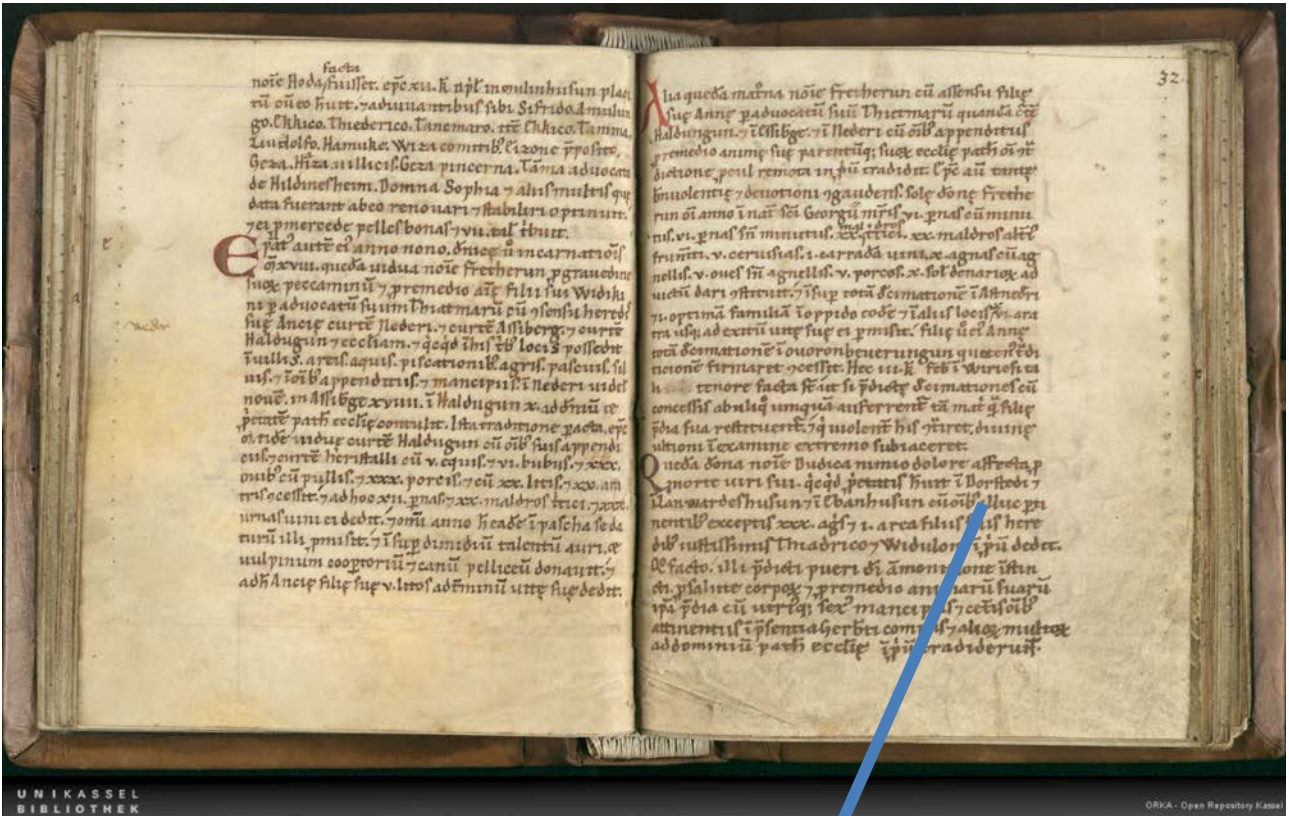 facta
noīe Hoda fuisset. epc xii. k apl in mulinhusun placi
tū cū eo huit. ⁊ adiuuantibus sibi Sifrido. Amulun
go. Ekkico. Thiederico. Tancmaro. itē Ekkico. Tamma.
Liudolfo. Hamuke. Wiza comitib. Ezone pposito.
Geza. Hiza uillicis. Geza pincerna. Tāma aduocato
de Hildinesheim. Domna Sophia ⁊ aliis multis que
data fuerant ab eo renouari ⁊ stabiliri optinuit.
⁊ ei p mercede pelles bonas ⁊ vii. tal tbuit.
Epat autē ei anno nono. dnicę ů incarnatiōis
xviii. quedā uidua noīe Fretherun p grauedine
suoꝝ peccaminū ⁊ p remedio aīę filii sui Widiki
ni p aduocatū suum Thiatmarū cū ɔsensu heredis
suę Ancię curtē Nederi. ⁊ curtē Assiberg. ⁊ curtē
Haldugun ⁊ eccliam. ⁊ qcqd ī his locis possedit
ī uillis. areis. aquis. piscationib. agris. pascuis. sil
uis. ⁊ ī oīb appenditiis. ⁊ mancipiis. ī nederi uidel
nouē. in Assibge xviiii. ī Haldugun x. ad dn̄iū
petatē path ecclię contulit. Ista traditione pacta. epc
eidē uiduę curtē Haldugun cū oīb suis appendi
ciis. ⁊ curtē heristalli cū v. equis. ⁊ vi. bubus. ⁊ xxx.
ouib cū pullis. ⁊ xxx. porcis. ⁊ cū xx. litis. ⁊ xx. am
tris ɔcessit. ⁊ ad hoc xii. pnas. ⁊ xx. maldros tritici. ⁊ xxx.
urnas uini ei dedit. ⁊ omī anno h eadē ī pascha se da
turū illi pmisit. ⁊ ī sup dimidiū talentū auri. &
uulpinum cooptoriū ⁊ canū pelliceū donauit. ⁊
adh Ancię filię suę v. litos ad tminū uitę suę dedit.
e
neder
32
Alia quedā matrna noīe Fretherun cū assensu filię
suę Annę p aduocatū suū Thietmarū quandā
Haldungun. ⁊ ī Assibge. ⁊ ī Nederi cū oīb appenditiis
p remedio animę suę parentūq; suoꝝ ecclię path
dictione pcul remota in pū tradidit. Epc aū tantę
bniuolentię ⁊ deuotioni ɔgaudens. solę dōnę Frethe
run oī anno ī nat sci Georgii mris vi. pnas cū minu
tiis. vi. pnas sn minutiis. xx. maldros tritici. xx. maldros alti
frumti. v. ceruisias. i. carradā uini. x. agnas cū ag
nellis. v. oues sn agnellis. v. porcos. x. sol denarioꝝ ad
uictū dari ɔstituit. ⁊ ī sup totā decimationē ī Astnederi
⁊ i. optimā familiā ī oppido
tra usq; ad exitū uitę suę ei pmisit. filię ů ei Annę
totā decimationē ī ouoronbeuerungun
ticionē firmaret ɔcessit. Hec iii. k feb ī
tenore facta st ut si pdictę decimationes cū
concessis ab aliq umquā auferrent tā mat q filię
pdia sua restituent. ⁊ q uiolent his ɔtiret. diuinę
ultioni ī examine extremo subiaceret.
Quedā dōna noīe Budica nimio dolore affecta p
morte uiri sui. qcqd ppetatis huit ī Dorstedi ⁊
Nanwardeshusun ⁊ ī Ebanhusun cū oīb illuc pti
nentib exceptis xxx. agis ⁊ i. area filiis suis here
dib iustissimis Thiadrico ⁊ Widulon ī pū dedit.
Q facto. illi pdicti pueri di āmonitione īstin
cti. p salute corpoꝝ ⁊ p remedio animarū suarū
ipa pdia cū utriq; sex mancipiis ⁊ cetis oīb
attinentiis ī psentia Herbti comitis ⁊ alioꝝ multoꝝ
ad dominiū path ecclię ī pū tradiderunt.
UNIKASSEL
BIBLIOTHEK
ORKA - Open Repository Kassel